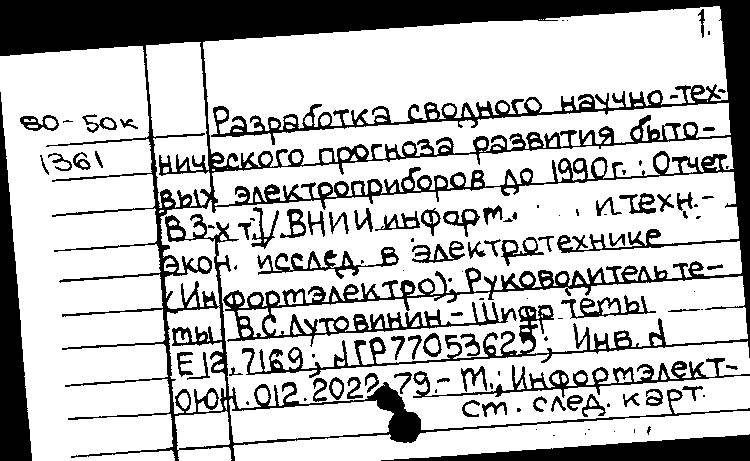 1.
80-50к
1361
Разработка сводного научно-тех-
нического прогноза развития быто-
вых электроприборов до 1990г.: Отчет.
[В 3-х т.]/ВНИИ информ. и техн.-
экон. исслед. в электротехнике
(Информэлектро); Руководитель те-
мы В.С.Лутовинин.- Шифр темы
Е12.7169; №ГР77053625; Инв.№
ОЮН.012.2022.79.- М.; Информэлект-
ст. след. карт.